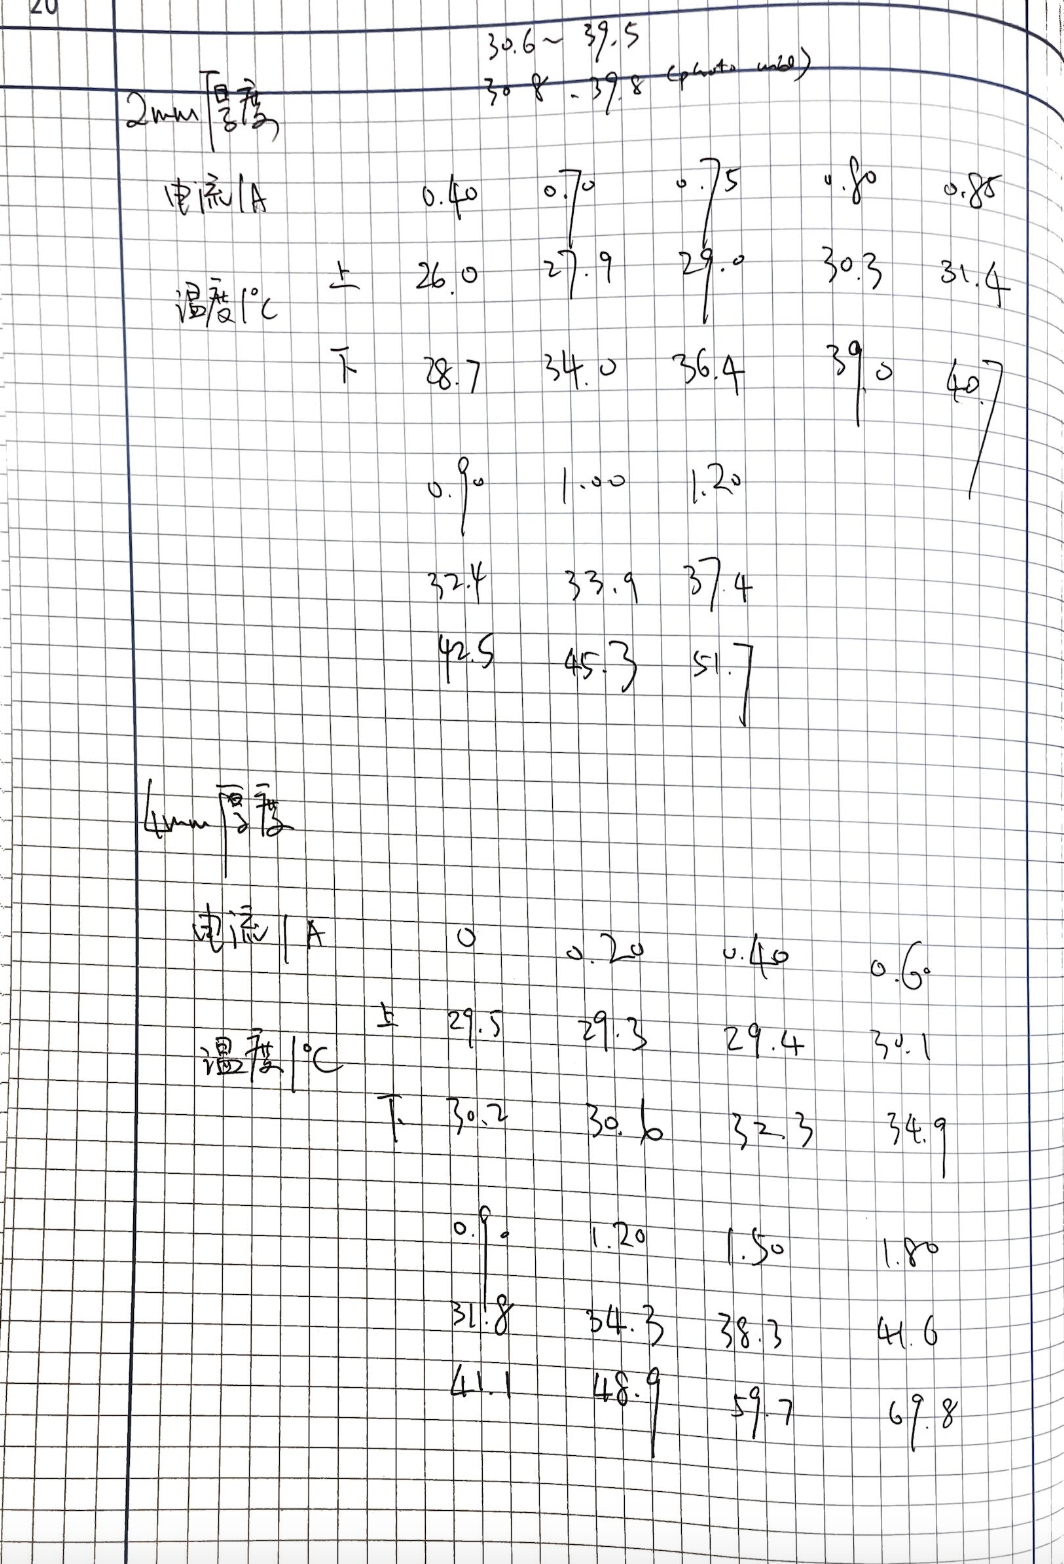 20
30.6~39.5
30.8-39.8 (photo used)
2mm厚度
电流/A 0.40 0.70 0.75 0.80 0.85
温度/°C 上 26.0 27.9 29.0 30.3 31.4
下 28.7 34.0 36.4 39.0 40.7
0.90 1.00 1.20
32.4 33.9 37.4
42.5 45.3 51.7
4mm厚度
电流/A 0 0.20 0.40 0.60
温度/°C 上 29.5 29.3 29.4 30.1
下 30.2 30.6 32.3 34.9
0.90 1.20 1.50 1.80
31.8 34.3 38.3 41.6
41.1 48.9 59.7 69.8